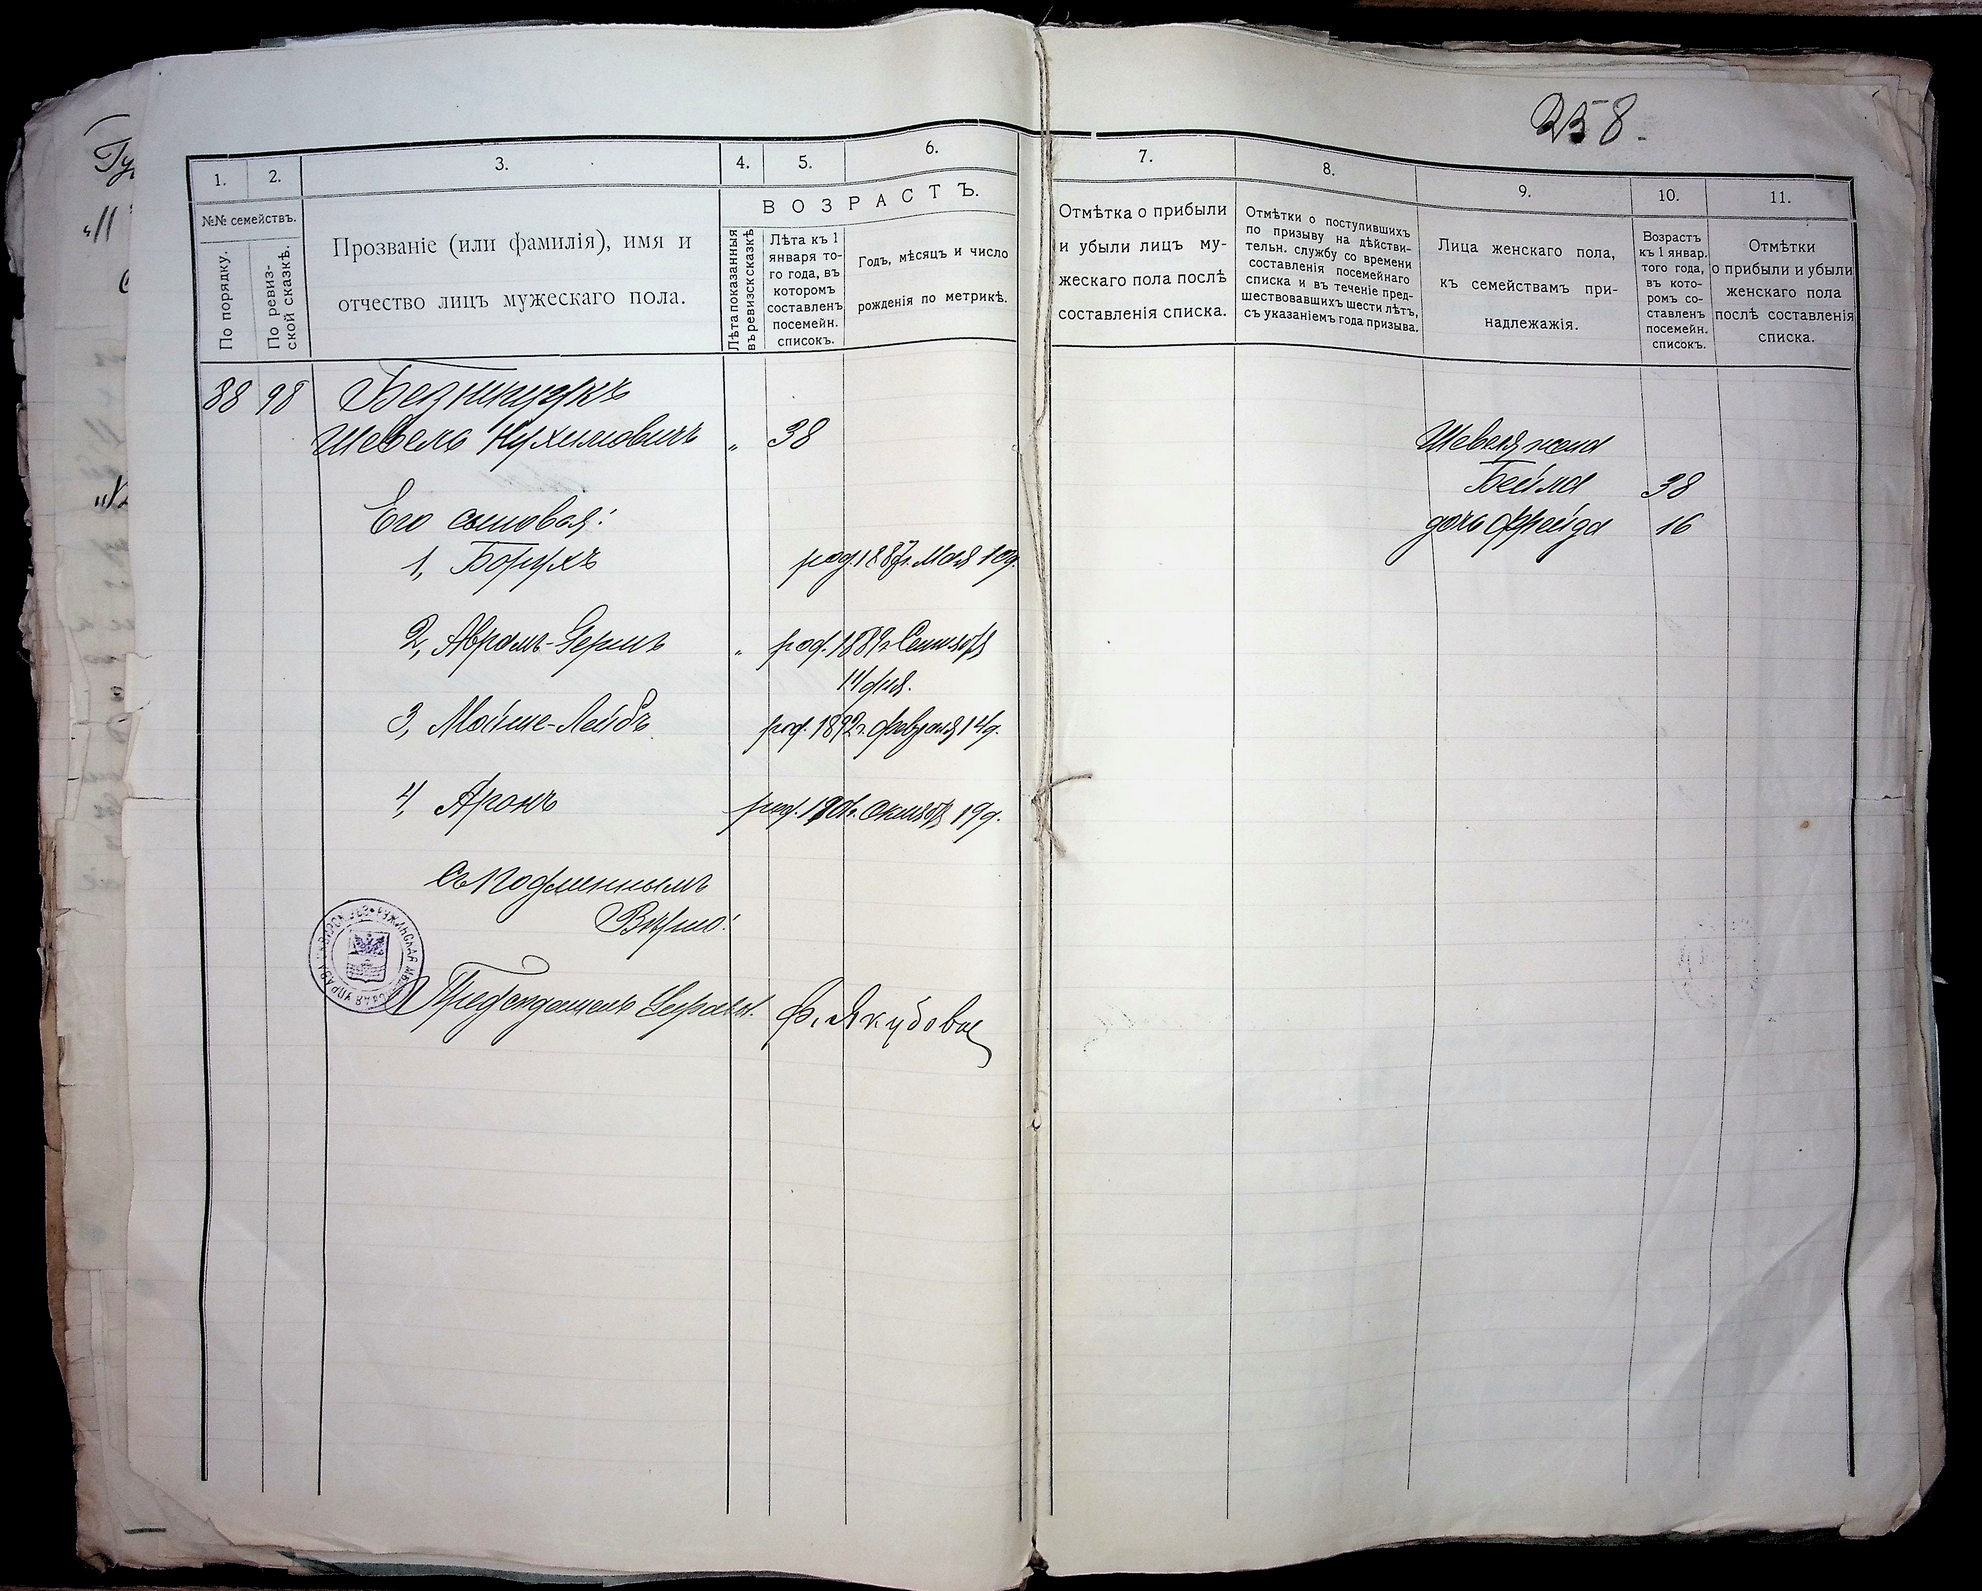 258.
1.
2.
3.
4.
5.
6.
7.
8.
9.
10.
11.
№№ семействъ.
По порядку.
По ревиз-
ской сказкѣ.
Прозваніе (или фамилія), имя и
отчество лицъ мужескаго пола.
ВОЗРАСТЪ.
Лѣта показанныя
въ ревизск. сказкѣ
Лѣта къ 1
января то-
го года, въ
которомъ
составленъ
посемейн.
списокъ.
Годъ, мѣсяцъ и число
рожденія по метрикѣ.
Отмѣтка о прибыли
и убыли лицъ му-
жеского пола послѣ
составленія списка.
Отмѣтки о поступившихъ
по призыву на дѣйстви-
тельн. службу со времени
составленія посемейнаго
списка и въ теченіе пред-
шествовавшихъ шести лѣтъ,
съ указаніемъ года призыва.
Лица женскаго пола,
къ семействамъ при-
надлежажія.
Возрастъ
къ 1 январ.
того года,
въ кото-
ромъ со-
ставленъ
посемейн.
списокъ.
Отмѣтки
о прибыли и убыли
женскаго пола
послѣ составленія
списка.
88 98
Шевель Нухимовичъ " 38
Шевеля жена
Бейла 38
Его сыновья:
дочь Фрейда 16
1, Борухъ род. 1887г. Мая 10д.
2, Аврамъ- " род. 1889г Сентября
14 дня.
3, Мойше-Лейбъ род. 1892г. Февраля 14д.
4, Аронъ род. 1901г. Октября 19д.
Съ подлиннымъ
Вѣрно:
Предсѣдатель Управы. Ф. Якубовъ